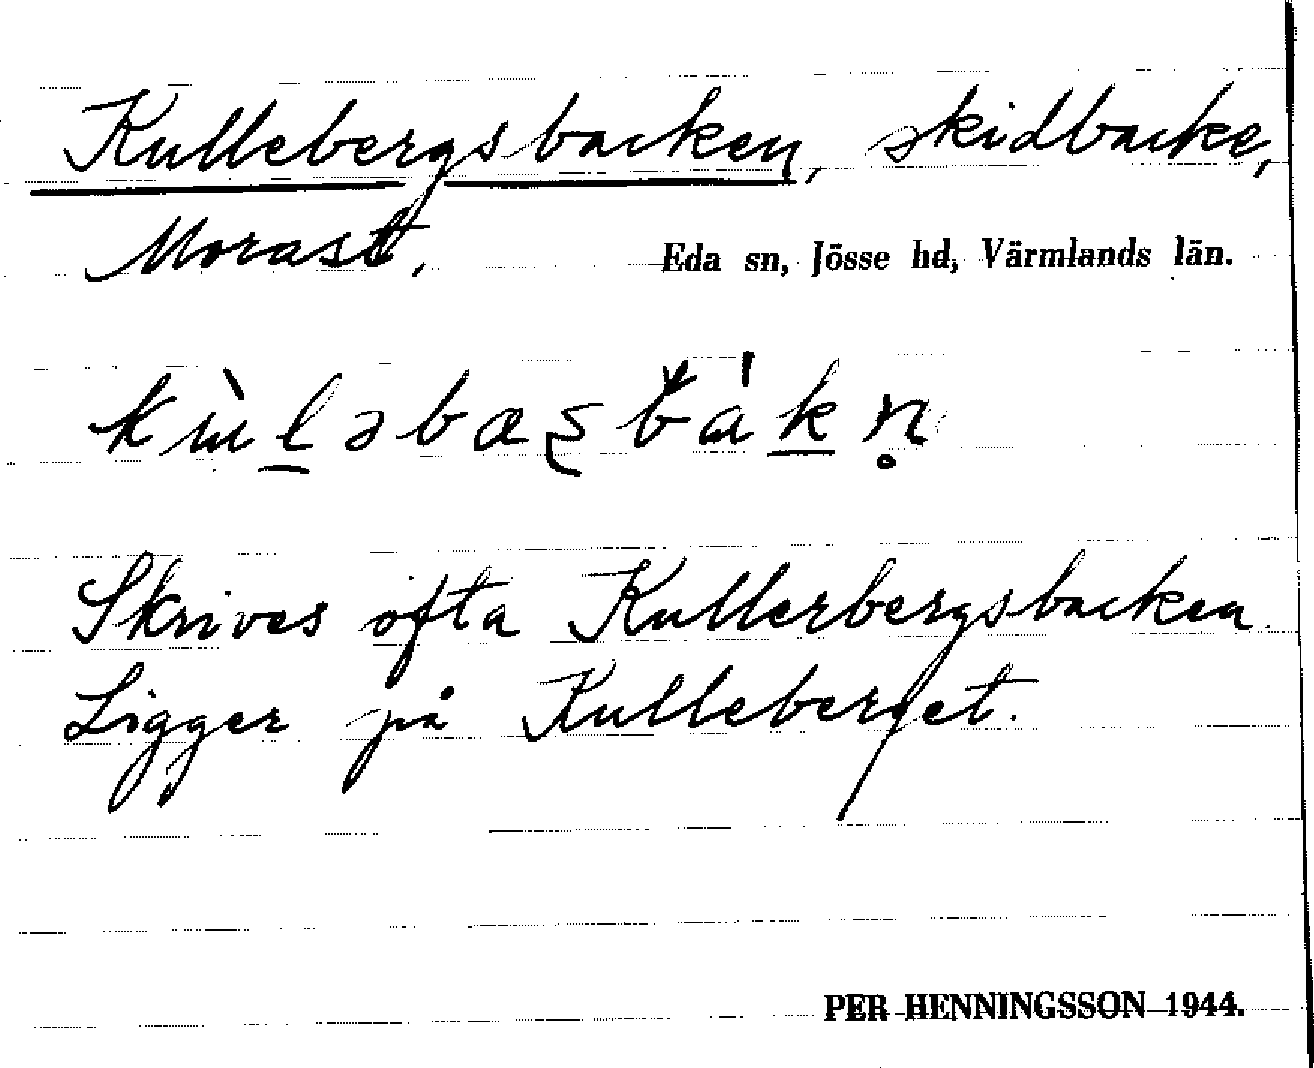 Kullebergsbacken, skidbacke,
Morast, Eda sn, Jösse hd, Värmlands län.
Skrives ofta Kullerbergsbacken
Ligger på Kulleberget.
PER HENNINGSSON 1944.